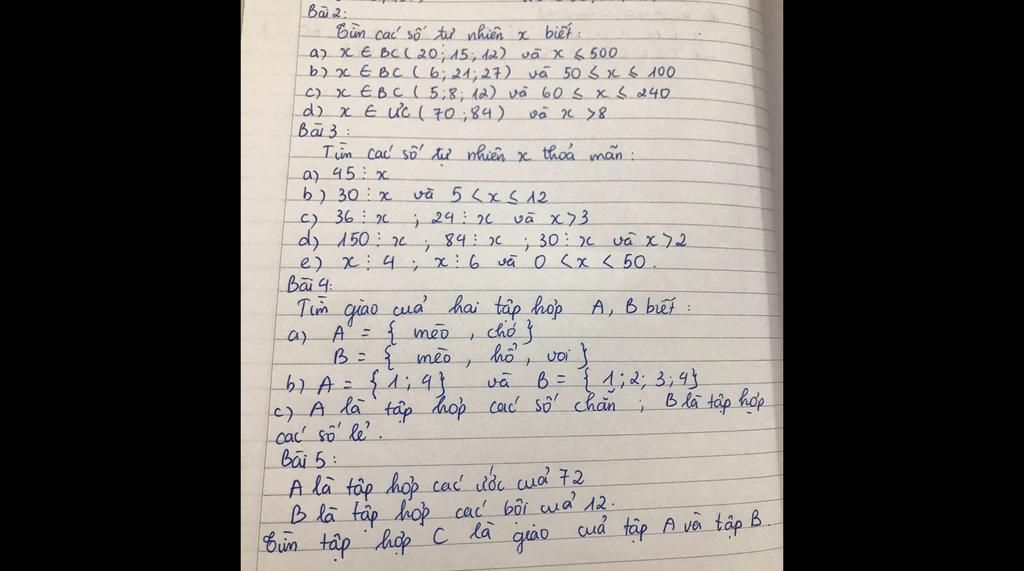 Bài 2:
Tìm các số tự nhiên x biết:
a) x ∈ BC(20; 15; 12) và x ≤ 500
b) x ∈ BC (6; 21; 27) và 50 ≤ x ≤ 100
c) x ∈ BC (5; 8; 12) và 60 ≤ x ≤ 240
d) x ∈ ƯC (70; 84) và x > 8
Bài 3:
Tìm các số tự nhiên x thoả mãn:
a) 45 ⋮ x
b) 30 ⋮ x và 5 < x ≤ 12
c) 36 ⋮ x ; 24 ⋮ x và x > 3
d) 150 ⋮ x ; 84 ⋮ x ; 30 ⋮ x và x > 2
e) x ⋮ 4 ; x ⋮ 6 và 0 < x < 50.
Bài 4:
Tìm giao cuả hai tập hợp A, B biết:
a) A = { mèo , chó }
B = { mèo , hổ , voi }
b) A = { 1; 4} và B = { 1; 2; 3; 4}
c) A là tập hợp các số chẵn ; B là tập hợp
các số lẻ.
Bài 5:
A là tập hợp các ước cuả 72
B là tập hợp các bội cuả 12.
Tìm tập hợp C là giao cuả tập A và tập B.